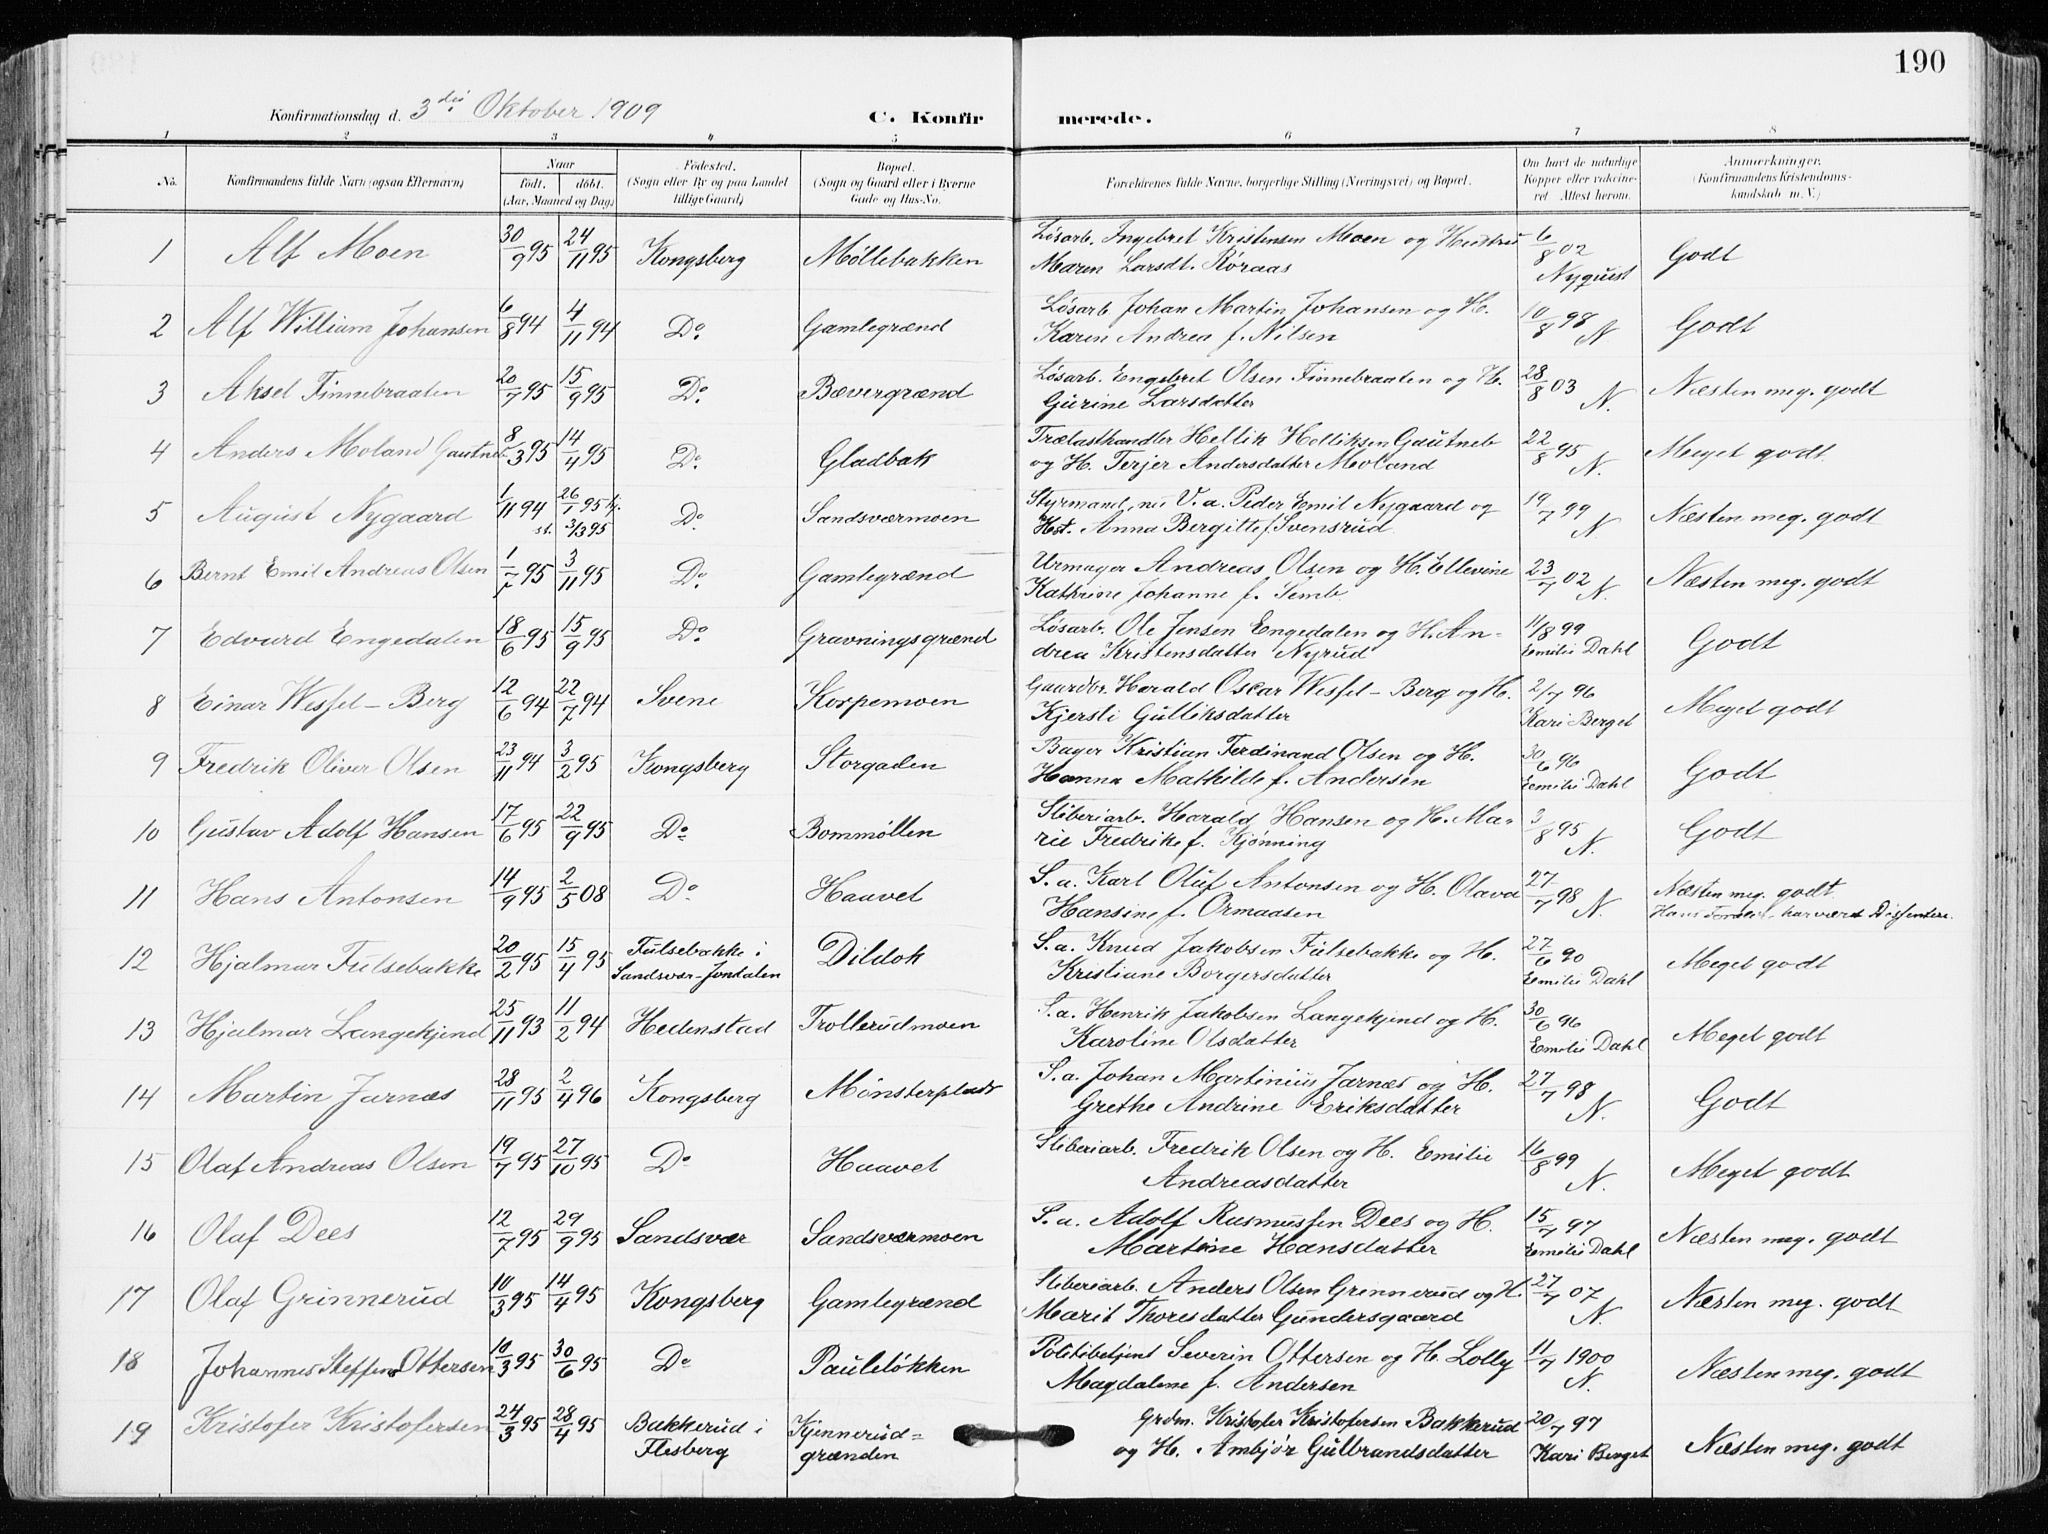 190
Konfirmationsdag d. 3die Oktober 1909
C. Konfirmerede.
1 2 3 4 5 6 7 8
No. Konfirmandens fulde Navn (ogsaa Efternavn) Naar födt. döbt. (Aar, Maaned og Dag) Födested. (Sogn eller By og paa Landet tillige Gaard) Bopæl. (Sogn og Gaard eller i Byerne Gade og Hus-No. Forældrenes fulde Navne, borgerlige Stilling (Næringsvei) og Bopæl. Om havt de naturlige Kopper eller vakcineret Attest herom. Anmerkninger. (Konfirmandens Kristendomskundskab m. V.)
1 Alf Moen 30/9 95 24/11 95 Kongsberg Møllebakken Løsarb. Ingebret Kristensen Moen og Hustru 6/8 02 Godt
Maren Larsdt. Røraas Nyquist
2 Alf William Johansen 6/8 94 4/11 94 Do. Gamlegrænd Løsarb. Johan Martin Johansen og H. 10/8 98 Godt
Karen Andrea f. Nilsen N.
3 Aksel Finnebraaten 20/7 95 15/9 95 Do. Bævergrænd Løsarb. Engebret Olsen Finnebraaten og H. 28/8 03 Næsten meg. godt
Gurine Larsdatter N.
4 Anders Moland Gautneb 8/3 95 14/4 95 Do. Gladbak Trælasthandler Hellik Helliksen Gautneb 22/8 95 Meget godt
og H. Terjer Andersdatter Moland N.
5 August Nygaard 1/11 94 26/1 95 hj. Do. Sandsværmoen Styrmand, nu V.a. Peder Emil Nygaard og 19/7 99 Næsten meg. godt
st. 3/3 95 Hst. Anna Bergitte f. Svensrud N.
6 Bernt Emil Andreas Olsen 1/7 95 3/11 95 Do. Gamlegrænd Urmager Andreas Olsen og H. Ellevine 23/7 02 Næsten meg. godt
Kathrine Johanne f. Semb N.
7 Edvard Engedalen 18/6 95 15/9 95 Do. Gravningsgrænd Løsarb. Ole Jensen Engedalen og H. An- 11/8 99 Godt
drea Kristensdatter Nyrud Emilie Dahl
8 Einar Wessel-Berg 12/6 94 22/7 94 Svene Korpemoen Gaardbr. Harald Oscar Wessel-Berg og H. 2/7 96 Meget godt
Kjersti Gulliksdatter Kari Berget
9 Fredrik Oliver Olsen 23/11 94 3/2 95 Kongsberg Storgaden Bager Kristian Ferdinand Olsen og H. 30/6 96 Godt
Hanna Mathilde f. Andersen Emilie Dahl
10 Gustav Adolf Hansen 17/6 95 22/9 95 Do Bommøllen Sliberiarb. Harald Hansen og H. Ma- 3/8 95 Godt
rie Fredrike f. Kjønning N.
11 Hans Antonsen 14/9 95 2/5 08 Do Haavet S.a. Karl Oluf Antonsen og H. Olava 27/7 98 Næsten meg. godt.
Hansine f. Ormaasen N. Hans Foræld. har været Dissentere.
12 Hjalmar Fulsebakke 20/2 95 15/4 95 Fulsebakke i Dildok S.a. Knud Jakobsen Fulsebakke og H. 27/6 90 Meget godt
Sandsvær-Jondalen Kristiane Borgersdatter Emilie Dahl
13 Hjalmar Langekjend 25/11 93 11/2 94 Hedenstad Trollerudmoen S.a. Henrik Jakobsen Langekjend og H. 30/6 96 Meget godt
Karoline Olsdatter Emilie Dahl
14 Martin Jarnæs 28/11 95 2/4 96 Kongsberg Mønsterplads S.a. Johan Martinius Jarnæs og H. 27/7 98 Godt
Grethe Andrine Eriksdatter N.
15 Olaf Andreas Olsen 19/7 95 27/10 95 Do Haavet Sliberiarb. Fredrik Olsen og H. Emilie 16/8 99 Meget godt
Andreasdatter N.
16 Olaf Dees 12/7 95 29/9 95 Sandsvær Sandsværmoen S.a. Adolf Rasmussen Dees og H. 15/7 97 Næsten meg. godt
Martine Hansdatter Emilie Dahl
17 Olaf Grinnerud 10/3 95 14/4 95 Kongsberg Gamlegrænd Sliberiarb. Anders Olsen Grinnerud og H. 27/7 07 Næsten meg. godt
Marit Thoresdatter Gundersgaard N.
18 Johannes Steffen Ottersen 10/3 95 30/6 95 Do Pauleløkken Politibetjent Severin Ottersen og H. Lolly 11/7 1900 Næsten meg. godt
Magdalene f. Andersen N.
19 Kristofer Kristofersen 24/3 95 28/4 95 Bakkerud i Kjennerud- Grdm. Kristofer Kristofersen Bakkerud 20/7 97 Næsten meg. godt
Flesberg grænden og H. Ambjør Gulbrandsdatter Kari Berget